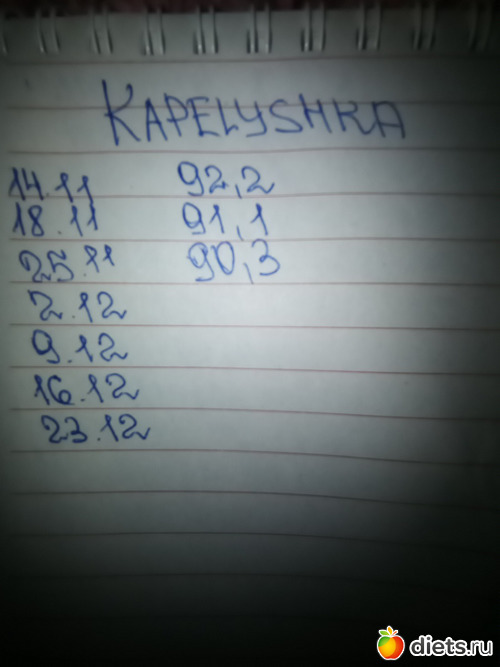 KAPELYSHKA
14.11 92,2
18.11 91,1
25.11 90,3
2.12
9.12
16.12
23.12
diets.ru